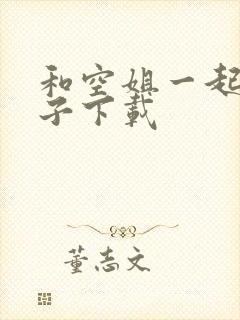 和空姐一起
子下载
董志文